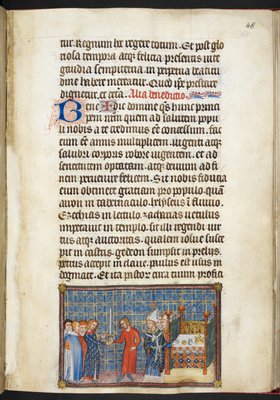 48
tur. Regnum hic regere totum. Et post glo
riosa tempora atque felicia presentis uite
gaudia sempiterna in perpetua beatitu
dine habere mereatur. Quod ipse prestare
dignetur, et cetera. Alia benedictio
Benedic domine quesumus hunc princi
pem nostrum quem ad salutem popu
li nobis a te credimus esse concessum. fac
eum esse annis multiplicem. uigenti atque
salubri corporis robore uigentem. et ad
senectutem optatam. atque demum ad fi
nem peruenire felicem. Sit nobis fiducia
eum obtinere gratiam pro populo. quam
aaron in tabernaculo. helyseus in fluuio.
Ezechias in lectulo. zacharias uetulus
impetrauit in templo. sit illi regendi uir
tus atque auctoritas. qualem iosue susce
pit in castris. gedeon sumpsit in preliis.
petrus accepit in claue. paulus est usus in
dogmate. Et ita pastorum cura tuum profici